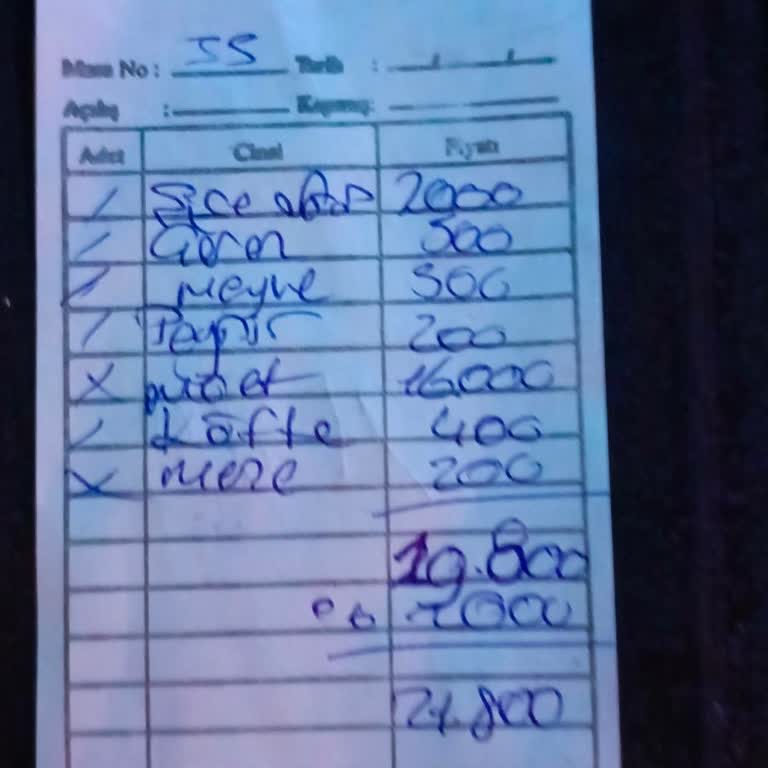 Masa No : 55 Tarih : / /
Açılış : Kapanış:
Adet Cinsi Fiyatı
/ Şişe 2000
/ 500
/ meyve 500
/ Peynir 200
X 16.000
/ köfte 400
X meze 200
19.800
2000
21.800